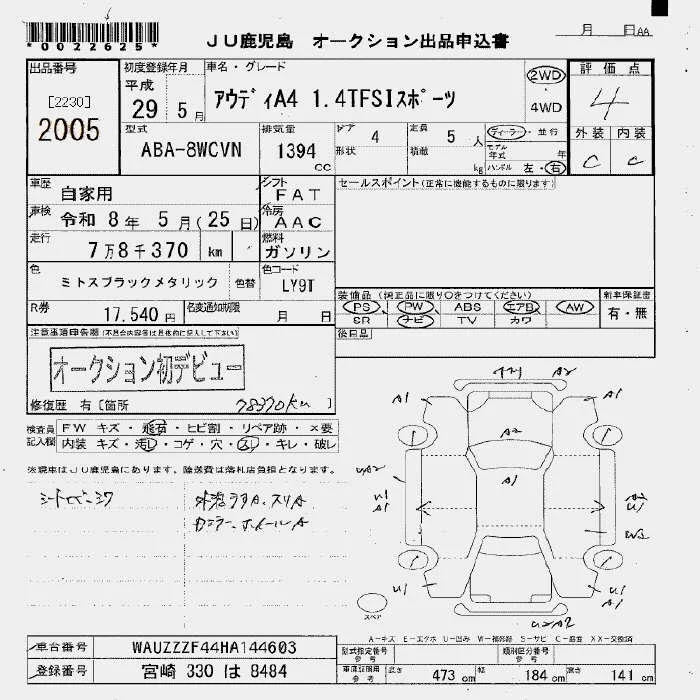 *0022625*
ＪＵ鹿児島　オークション出品申込書
月　日AA
出品番号
[2230]
2005
初度登録年月
平成
29 5 月
車名・グレード
アウディA4 1.4TFSIスポーツ
2WD
4WD
評価点
4
外装 内装
C C
型式
ABA-8WCVN
排気量
1394 cc
ドア 4
形状
定員 5 人
積載 kg
ディーラー・並行
モデル年式 年
ハンドル 左・右
車歴 自家用
車検 令和 8 年 5 月 ( 25 日)
走行 7万8千370 km
色 ミトスブラックメタリック 色替
R券 17,540 円
名変通知期限 月 日
シフト FAT
冷房 AAC
燃料 ガソリン
色コード LY9T
セールスポイント(正常に機能するものに限ります)
装備品(純正品に限り○をつけてください)
PS PW ABS エアB AW
SR ナビ TV カワ
新車保証書
有・無
後日品
注意事項申告欄
オークション初デビュー
修復歴 有 [箇所 78370km ]
検査員記入欄
FW キズ・飛石・ヒビ割・リペア跡・×要
内装 キズ・汚れ・コゲ・穴・スレ・キレ・破レ
※現車はＪＵ鹿児島にあります。陸送費は落札店負担となります。
A1 A2 A1
A2
A1
U1
A1
U1
U1 A1
スペア
A－キズ E－エクボ U－凹み W－補修跡 S－サビ C－腐食 XX－交換済
車台番号 WAUZZZF44HA144603
登録番号 宮崎 330 は 8484
型式指定番号 参考
類別区分番号 参考
車庫証明用 参考 長さ 473 cm 幅 184 cm 高さ 141 cm